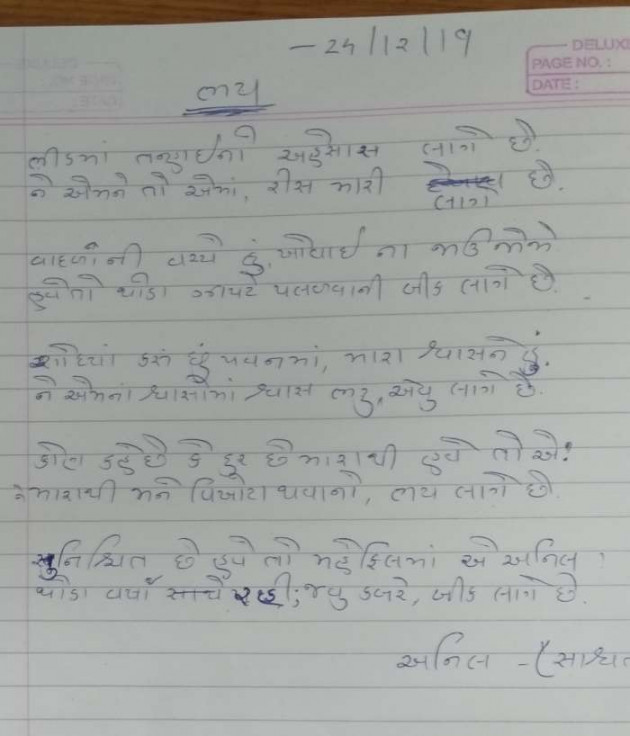 - 24/12/19
DELUXE
PAGE NO. :
DATE :
ભય
ભીડમાં તન્હાઈની અહેસાસ લાગે છે.
ને એમને તો એમાં, રીસ મારી લાગે છે.
વાદળોની વચ્ચે હું, ખોવાઈ ના જાઉં જોજે
હવે તો થોડા ઝાપટે પલળવાની બીક લાગે છે.
શોધ્યાં કરું છું પવનમાં, મારા શ્વાસને હું.
ને એમનાં શ્વાસોમાં શ્વાસ ભરુ, એવુ લાગે છે.
કોણ કહે છે કે દુર છે મારાથી હવે તો એ!
ને મારાથી મને વિખોટા થવાનો, ભય લાગે છે.
સુનિશ્ચિત છે હવે તો મહેફિલમાં એ અનિલ !
થોડા વર્ષો સાચે રહી; જવુ કબરે, બીક લાગે છે.
અનિલ - (સાશ્વત